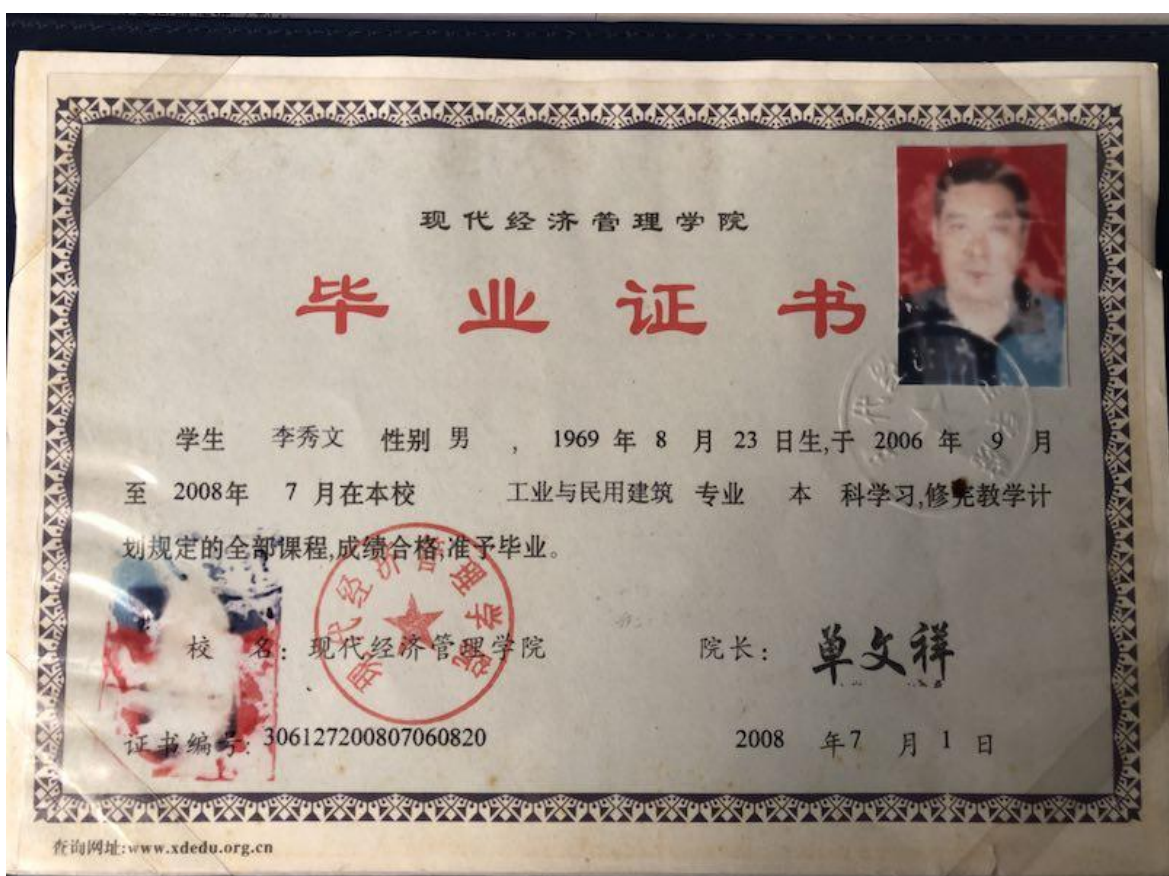 现代经济管理学院
毕业证书
学生 李秀文 性别 男 , 1969 年 8 月 23 日生,于 2006 年 9 月
至 2008年 7 月在本校 工业与民用建筑 专业 本 科学习,修完教学计
划规定的全部课程,成绩合格,准予毕业。
现代经济管理学院
校 名: 现代经济管理学院 院长: 单文祥
证书编号: 306127200807060820 2008 年7 月 1 日
查询网址:www.xdedu.org.cn